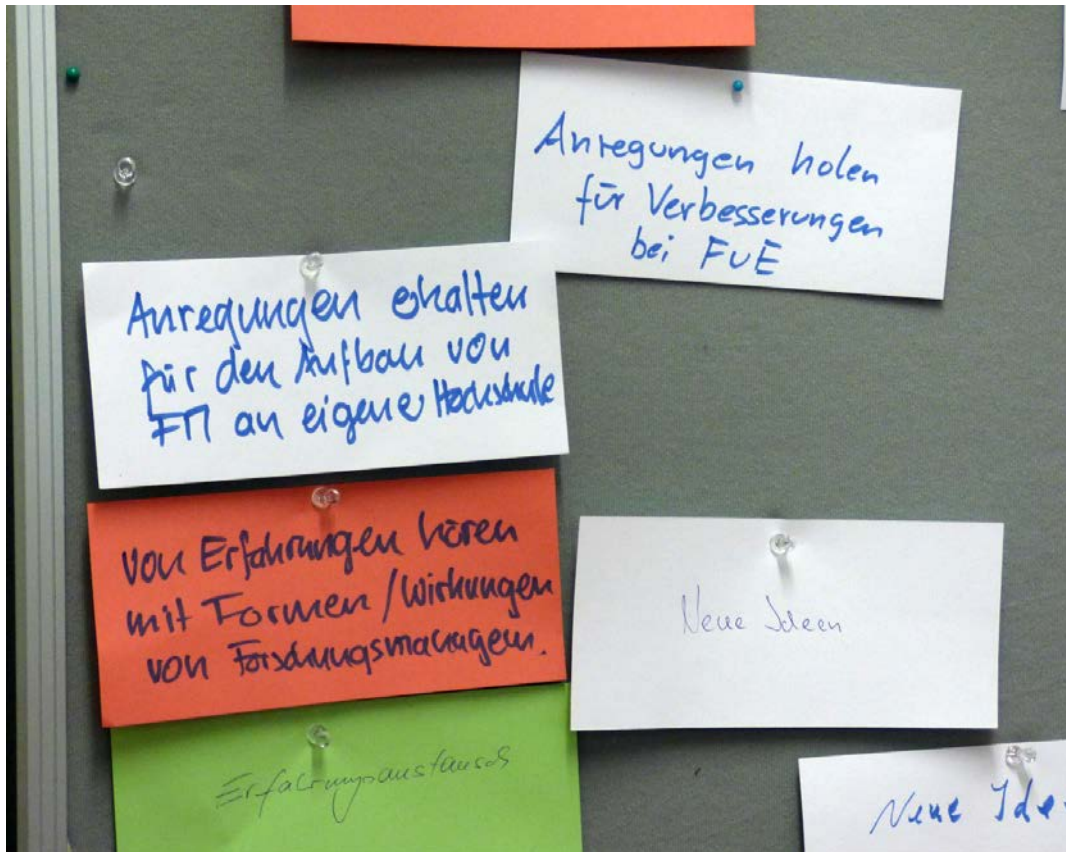 Anregungen holen
für Verbesserungen
bei FuE
Anregungen erhalten
für den Aufbau von
FM an eigener Hochschule
von Erfahrungen hören
mit Formen / Wirkungen
von Forschungsmanagem.
Neue Ideen
Erfahrungsaustausch
Neue Ide